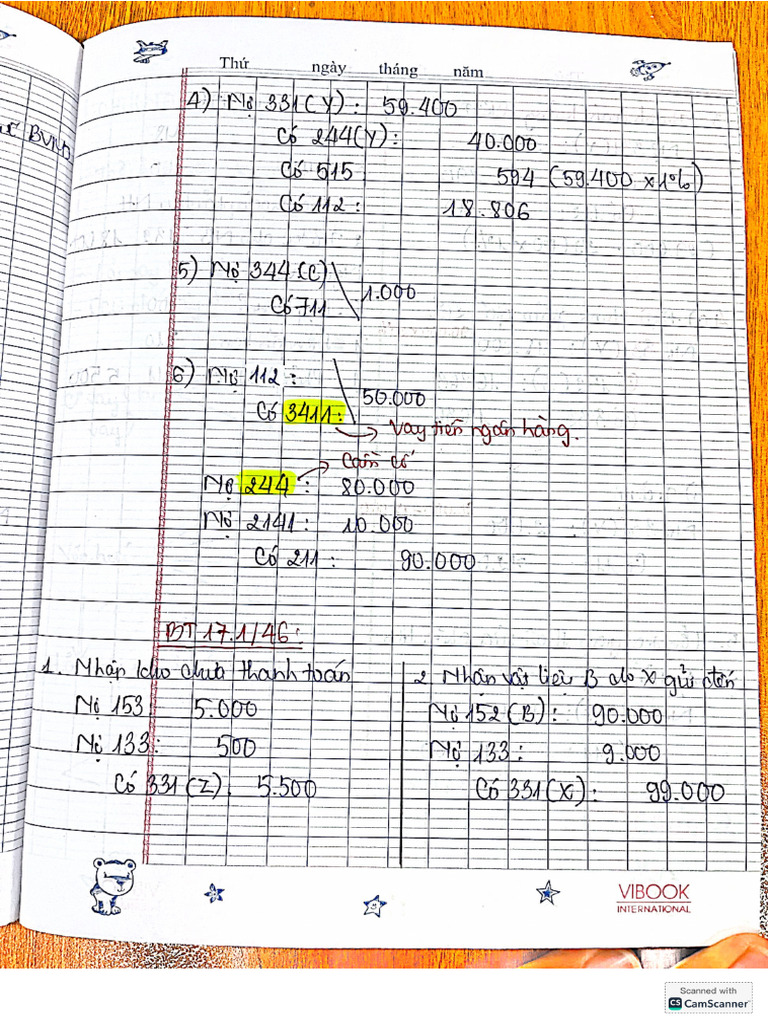 Thứ ngày tháng năm
4) Nợ 331(Y): 59.400
Có 244(Y): 40.000
Có 515 594 (59.400 x 1%)
Có 112: 18.806
5) Nợ 344(C)
1.000
Có 711
6) Nợ 112:
50.000
Có 3411:
Vay tiền ngân hàng.
Cầm cố
Nợ 244: 80.000
Nợ 2141: 10.000
Có 211: 90.000
BT 17.1/46:
1. Nhập kho chưa thanh toán
Nợ 153: 5.000
Nợ 133: 500
Có 331(Z) 5.500
2 Nhận vật liệu B do X gửi đến
Nợ 152(B): 90.000
Nợ 133: 9.000
Có 331(X): 99.000
VIBOOK
INTERNATIONAL
Scanned with
CS CamScanner